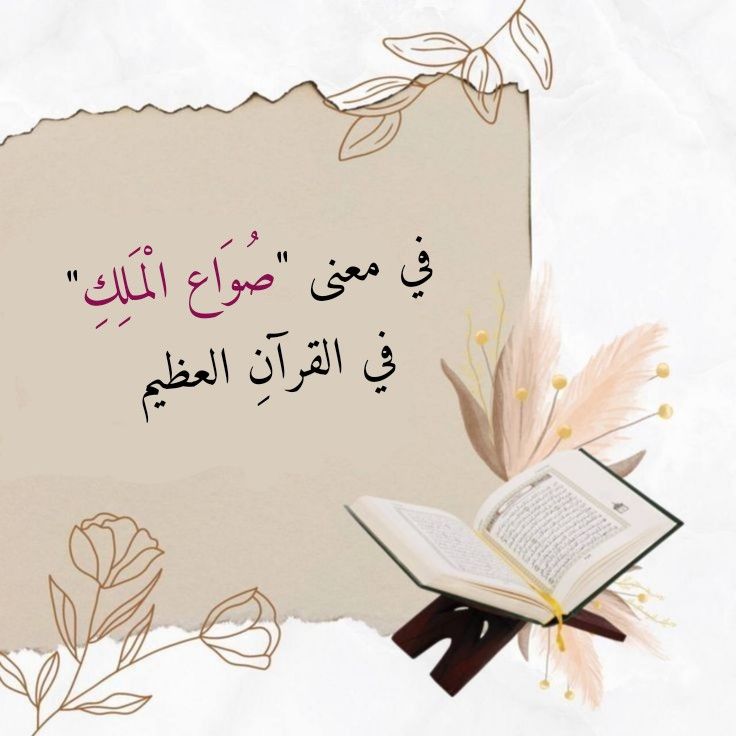 في معنى "صُوَاع الْمَلِكِ"
في القرآنِ العظيم